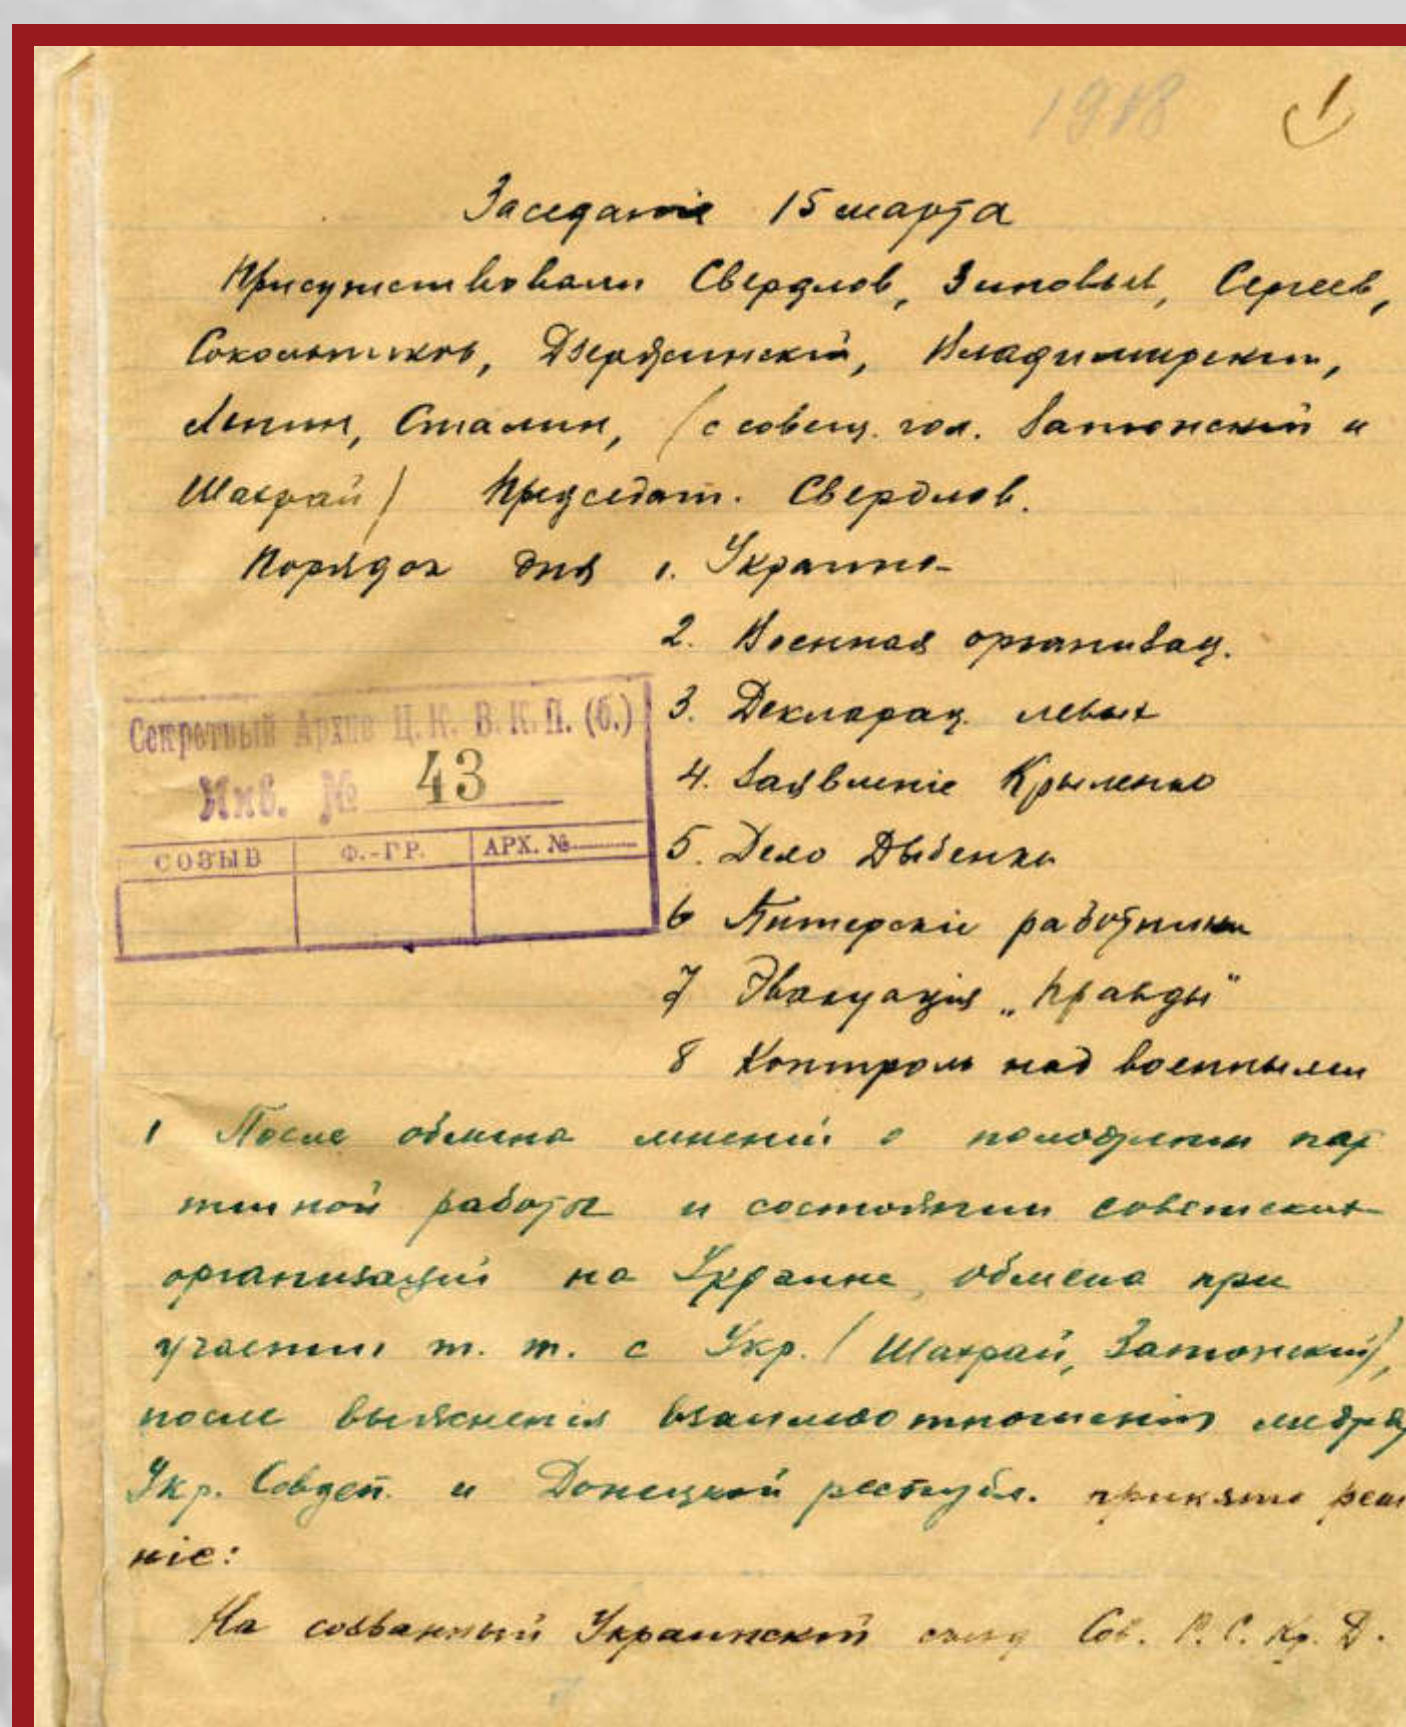 1918
1
Заседаніе 15 марта
Присутствовали Свердлов, Зиновьев, Сергеев,
Сокольников, Дзержинскій, Владимирскій,
Ленин, Сталин, (с совещ. гол. Затонскій и
Шахрай) Председат. Свердлов.
Порядок дня 1. Украина
2. Военная организац.
3. Декларац. левых
4. Заявленіе Крыленко
5. Дело Дыбенки
6 Питерскіе работники
7 Эвакуація „Правды“
8 Контроль над военными
Секретный Архив Ц. К. В. К. П. (б.)
Инв. № 43
СОЗЫВ Ф.-ГР. АРХ. №
1 После обмена мнений о положении пар
тийной работы и состоянии советских
организаций на Украине, обмена при
участии т. т. с Укр. (Шахрай, Затонский),
после выясненія взаимоотношений между
Укр. Совдеп. и Донецкой республ. принято реше
ніе:
На созванный Украинский съезд Сов. Р. С. Кр. Д.